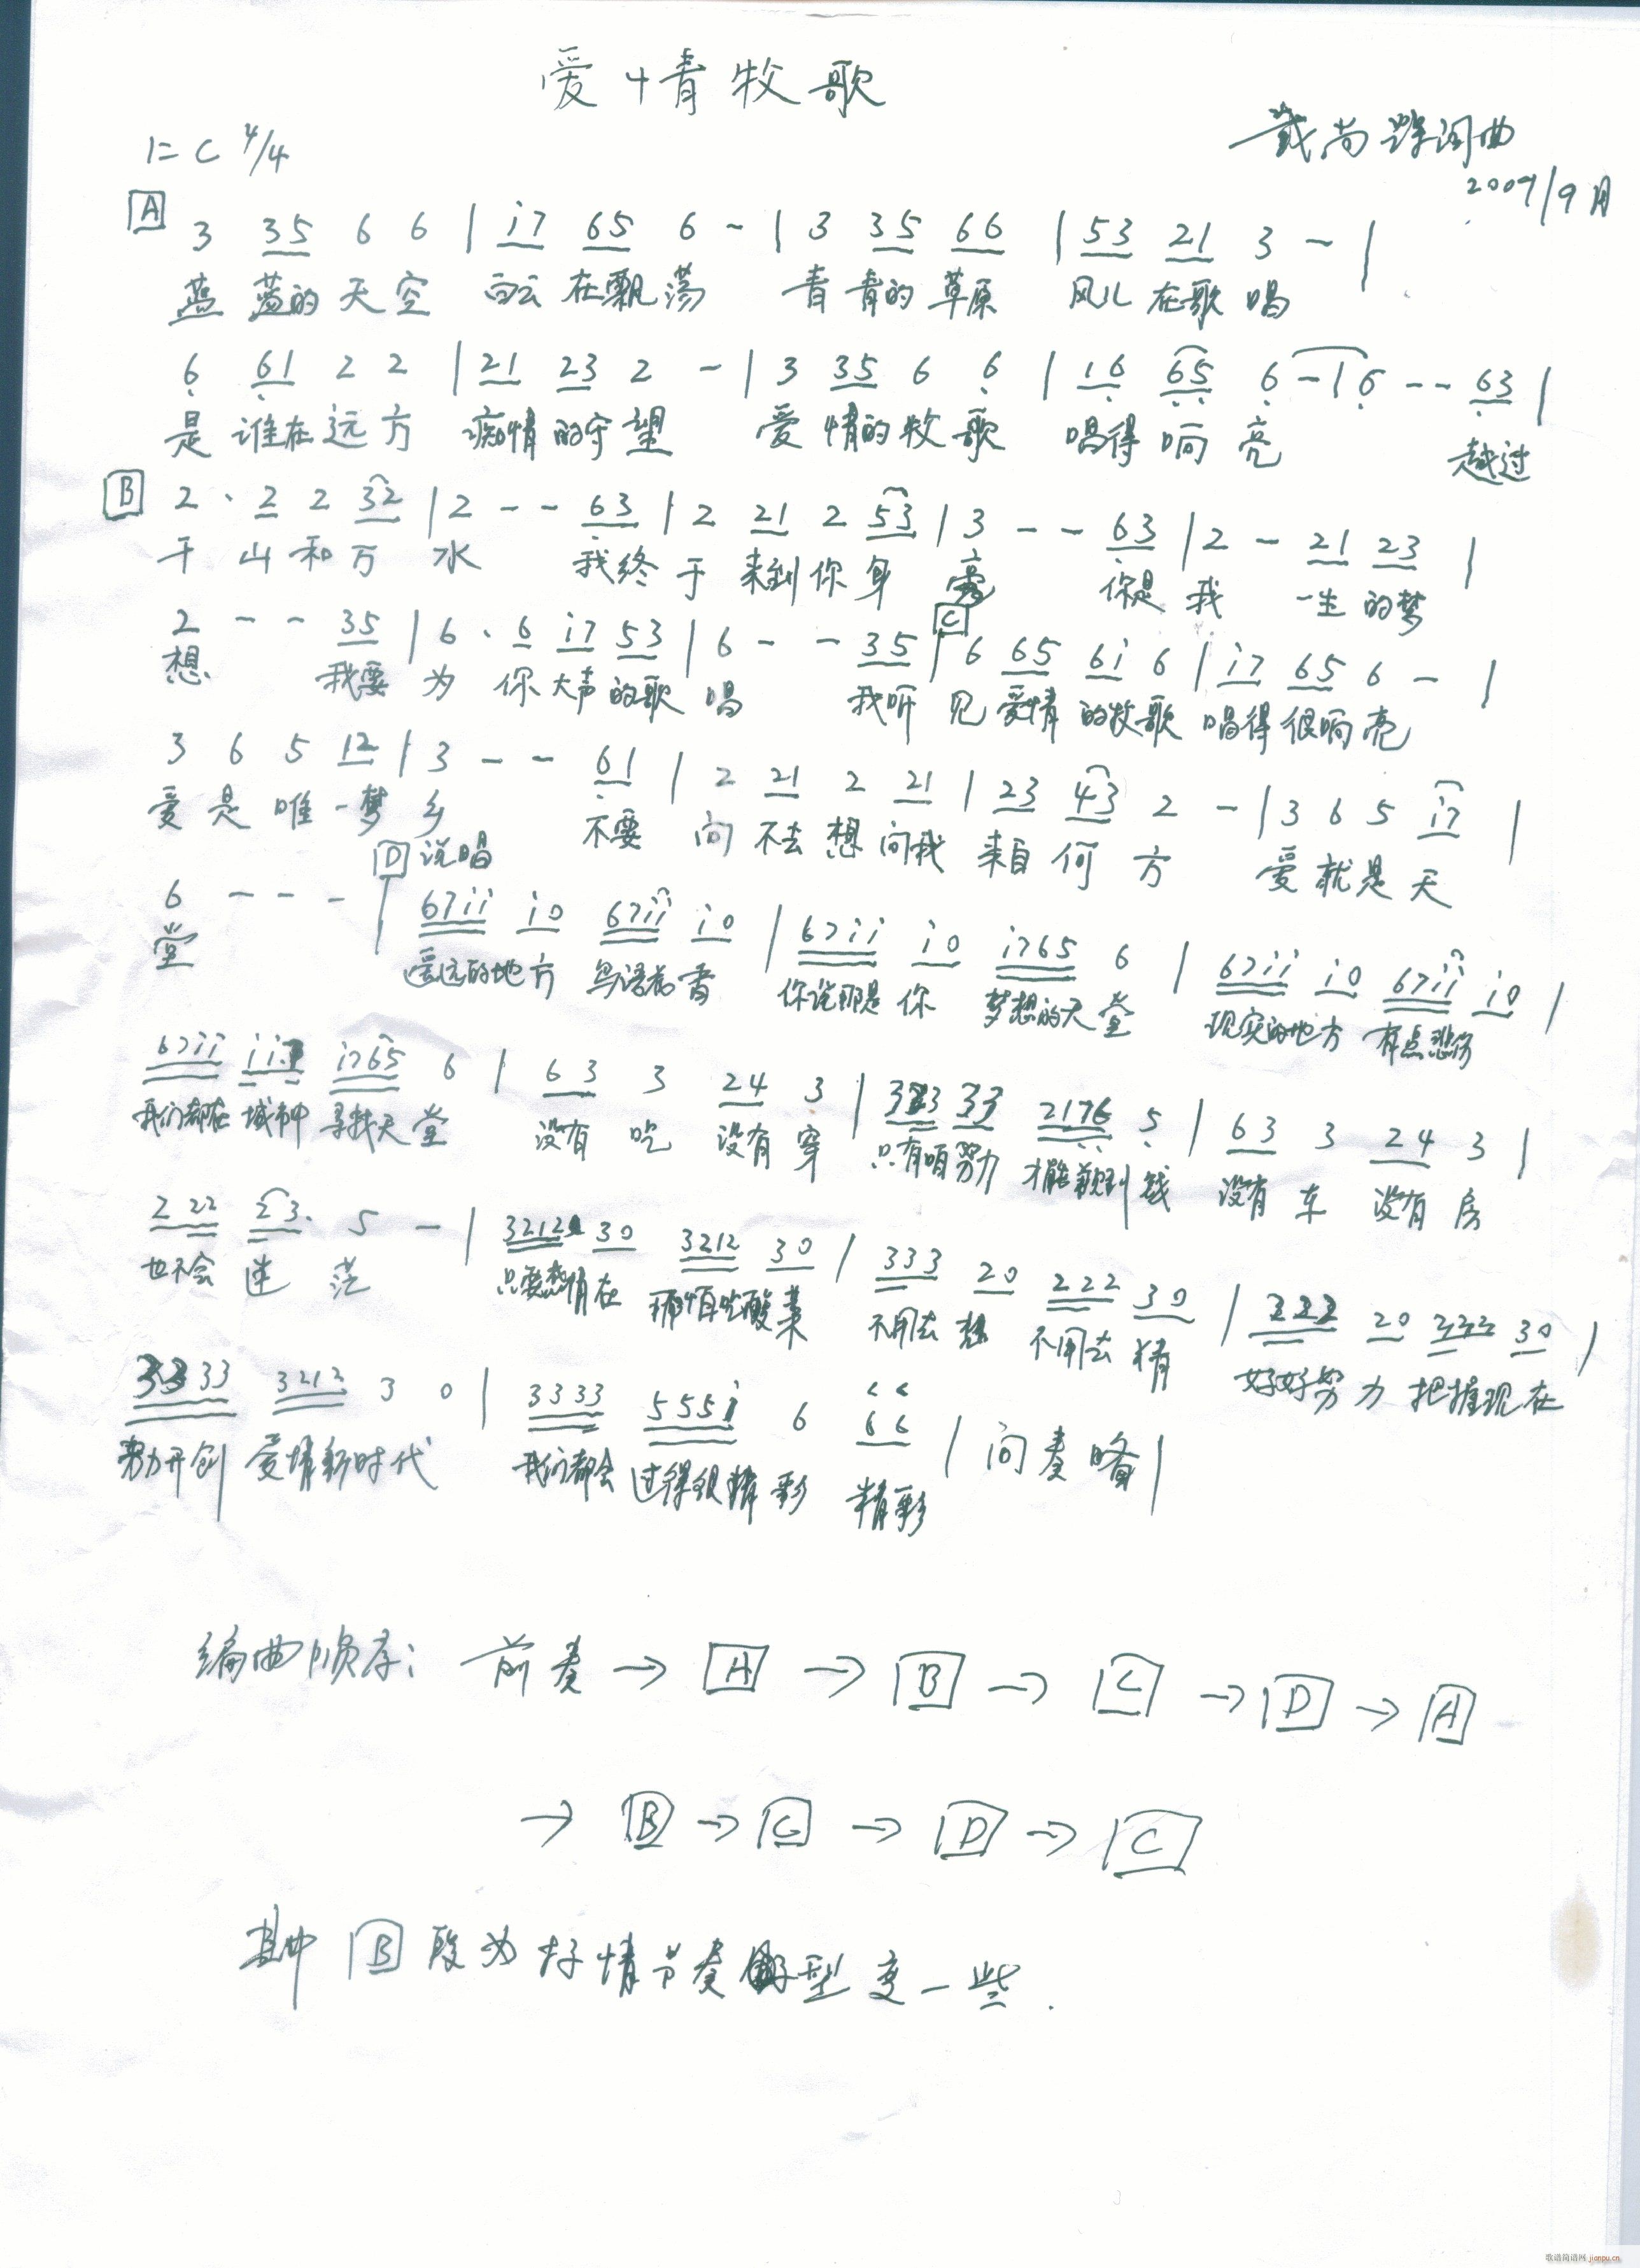 爱情牧歌
1=C 4/4
戴尚 词曲
2009/9月
A 3 35 6 6 | i7 65 6 - | 3 35 66 | 53 21 3 - |
蓝 蓝的 天 空 白云 在飘 荡 青 青的 草原 风儿 在歌 唱
6 61 2 2 | 21 23 2 - | 3 35 6 6 | 16 65 6 - | 6 - - 63 |
是 谁在 远 方 痴情 的守 望 爱 情的 牧 歌 唱得 响 亮 越过
B 2 · 2 2 32 | 2 - - 63 | 2 21 2 53 | 3 - - 63 | 2 - 21 23 |
千 山 和 万 水 我终 于 来到 你 身 旁 你是 我 一生 的梦
2 - - 35 | 6 · 6 i7 53 | 6 - - 35 | C 6 65 6i 6 | i7 65 6 - |
想 我要 为 你 大声 的歌 唱 我听 见 爱情 的牧 歌 唱得 很响 亮
3 6 5 12 | 3 - - 61 | 2 21 2 21 | 23 43 2 - | 3 6 5 i7 |
爱 是 唯 一梦 乡 不要 问 不去 想 问我 来自 何 方 爱 就 是 天
D 说唱
6 - - - | 67ii i0 67ii i0 | 67ii i0 i765 6 | 67ii i0 67ii i0 |
堂 遥远的地 方 鸟语花 香 你说那是 你 梦想的天 堂 现实的地 方 有点悲 伤
67ii ii i765 6 | 63 3 24 3 | 333 33 2176 5 | 63 3 24 3 |
我们都在 城市中 寻找天 堂 没有 吃 没有 穿 只有咱 努力 才能赖到 钱 没有 车 没有 房
2 22 23· 5 - | 3212 30 3212 30 | 333 20 222 30 | 222 20 222 30 |
也不会 迷 茫 只要 情 在 那怕吃酸 菜 不用去 想 不用去 猜 好好努 力 把握现 在
3333 3212 3 0 | 3333 555i 6 66 | 间奏略 |
努力开创 爱情新时 代 我们都会 过得很精 彩 精彩
编曲顺序: 前奏 → A → B → C → D → A
→ B → C → D → C
其中 B 段为抒情节奏 型变一些.
歌谱简谱网 jianpu.cn